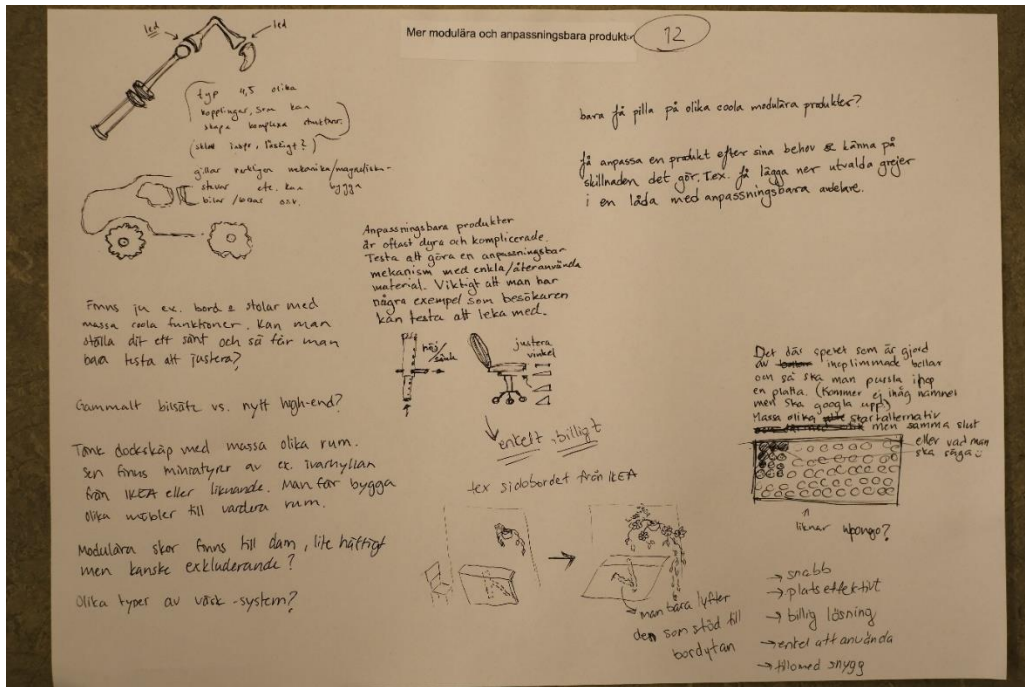 Mer modulära och anpassningsbara produkter
12
led
led
typ 4,5 olika
kopplingar, som kan
skapa komplexa
gillar verkligen mekanika/magnetiska-
stavar etc. kan bygga
bilar osv.
Finns ju ex. bord & stolar med
massa coola funktioner. Kan man
ställa dit ett sånt och så får man
bara testa att justera?
Gammalt bilsäte vs. nytt high-end?
Tänk dockskåp med massa olika rum.
Sen finns miniatyrer av ex. ivarhyllan
från IKEA eller liknande. Man får bygga
olika möbler till vardera rum.
Modulära skor finns till dam, lite häftigt
men kanske exkluderande?
Olika typer av väsk-system?
Anpassningsbara produkter
är oftast dyra och komplicerade.
Testa att göra en anpassningsbar
mekanism med enkla/återanvända
material. Viktigt att man har
några exempel som besökaren
kan testa att leka med.
höj/
sänk
justera
vinkel
enkelt, billigt
tex sidobordet från IKEA
man bara lyfter
den som stöd till
bordytan
bara få pilla på olika coola modulära produkter?
få anpassa en produkt efter sina behov & känna på
skillnaden det gör. Tex. få lägga ner utvalda grejer
i en låda med anpassningsbara avdelare.
Det där spelet som är gjord
av ihoplimmade bollar
och så ska man pussla ihop
en platta. (Kommer ej ihåg namnet
men ska googla upp.)
Massa olika startalternativ
men samma slut
eller vad man
ska säga
liknar ubongo?
→ snabb
→ platseffektivt
→ billig lösning
→ enkel att använda
→ tillomed snygg